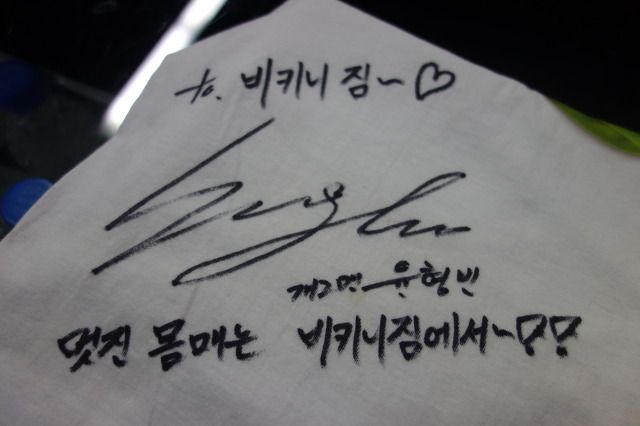 to. 비키니 짐~♡
개그맨 윤형빈
멋진 몸매는 비키니짐에서~!!